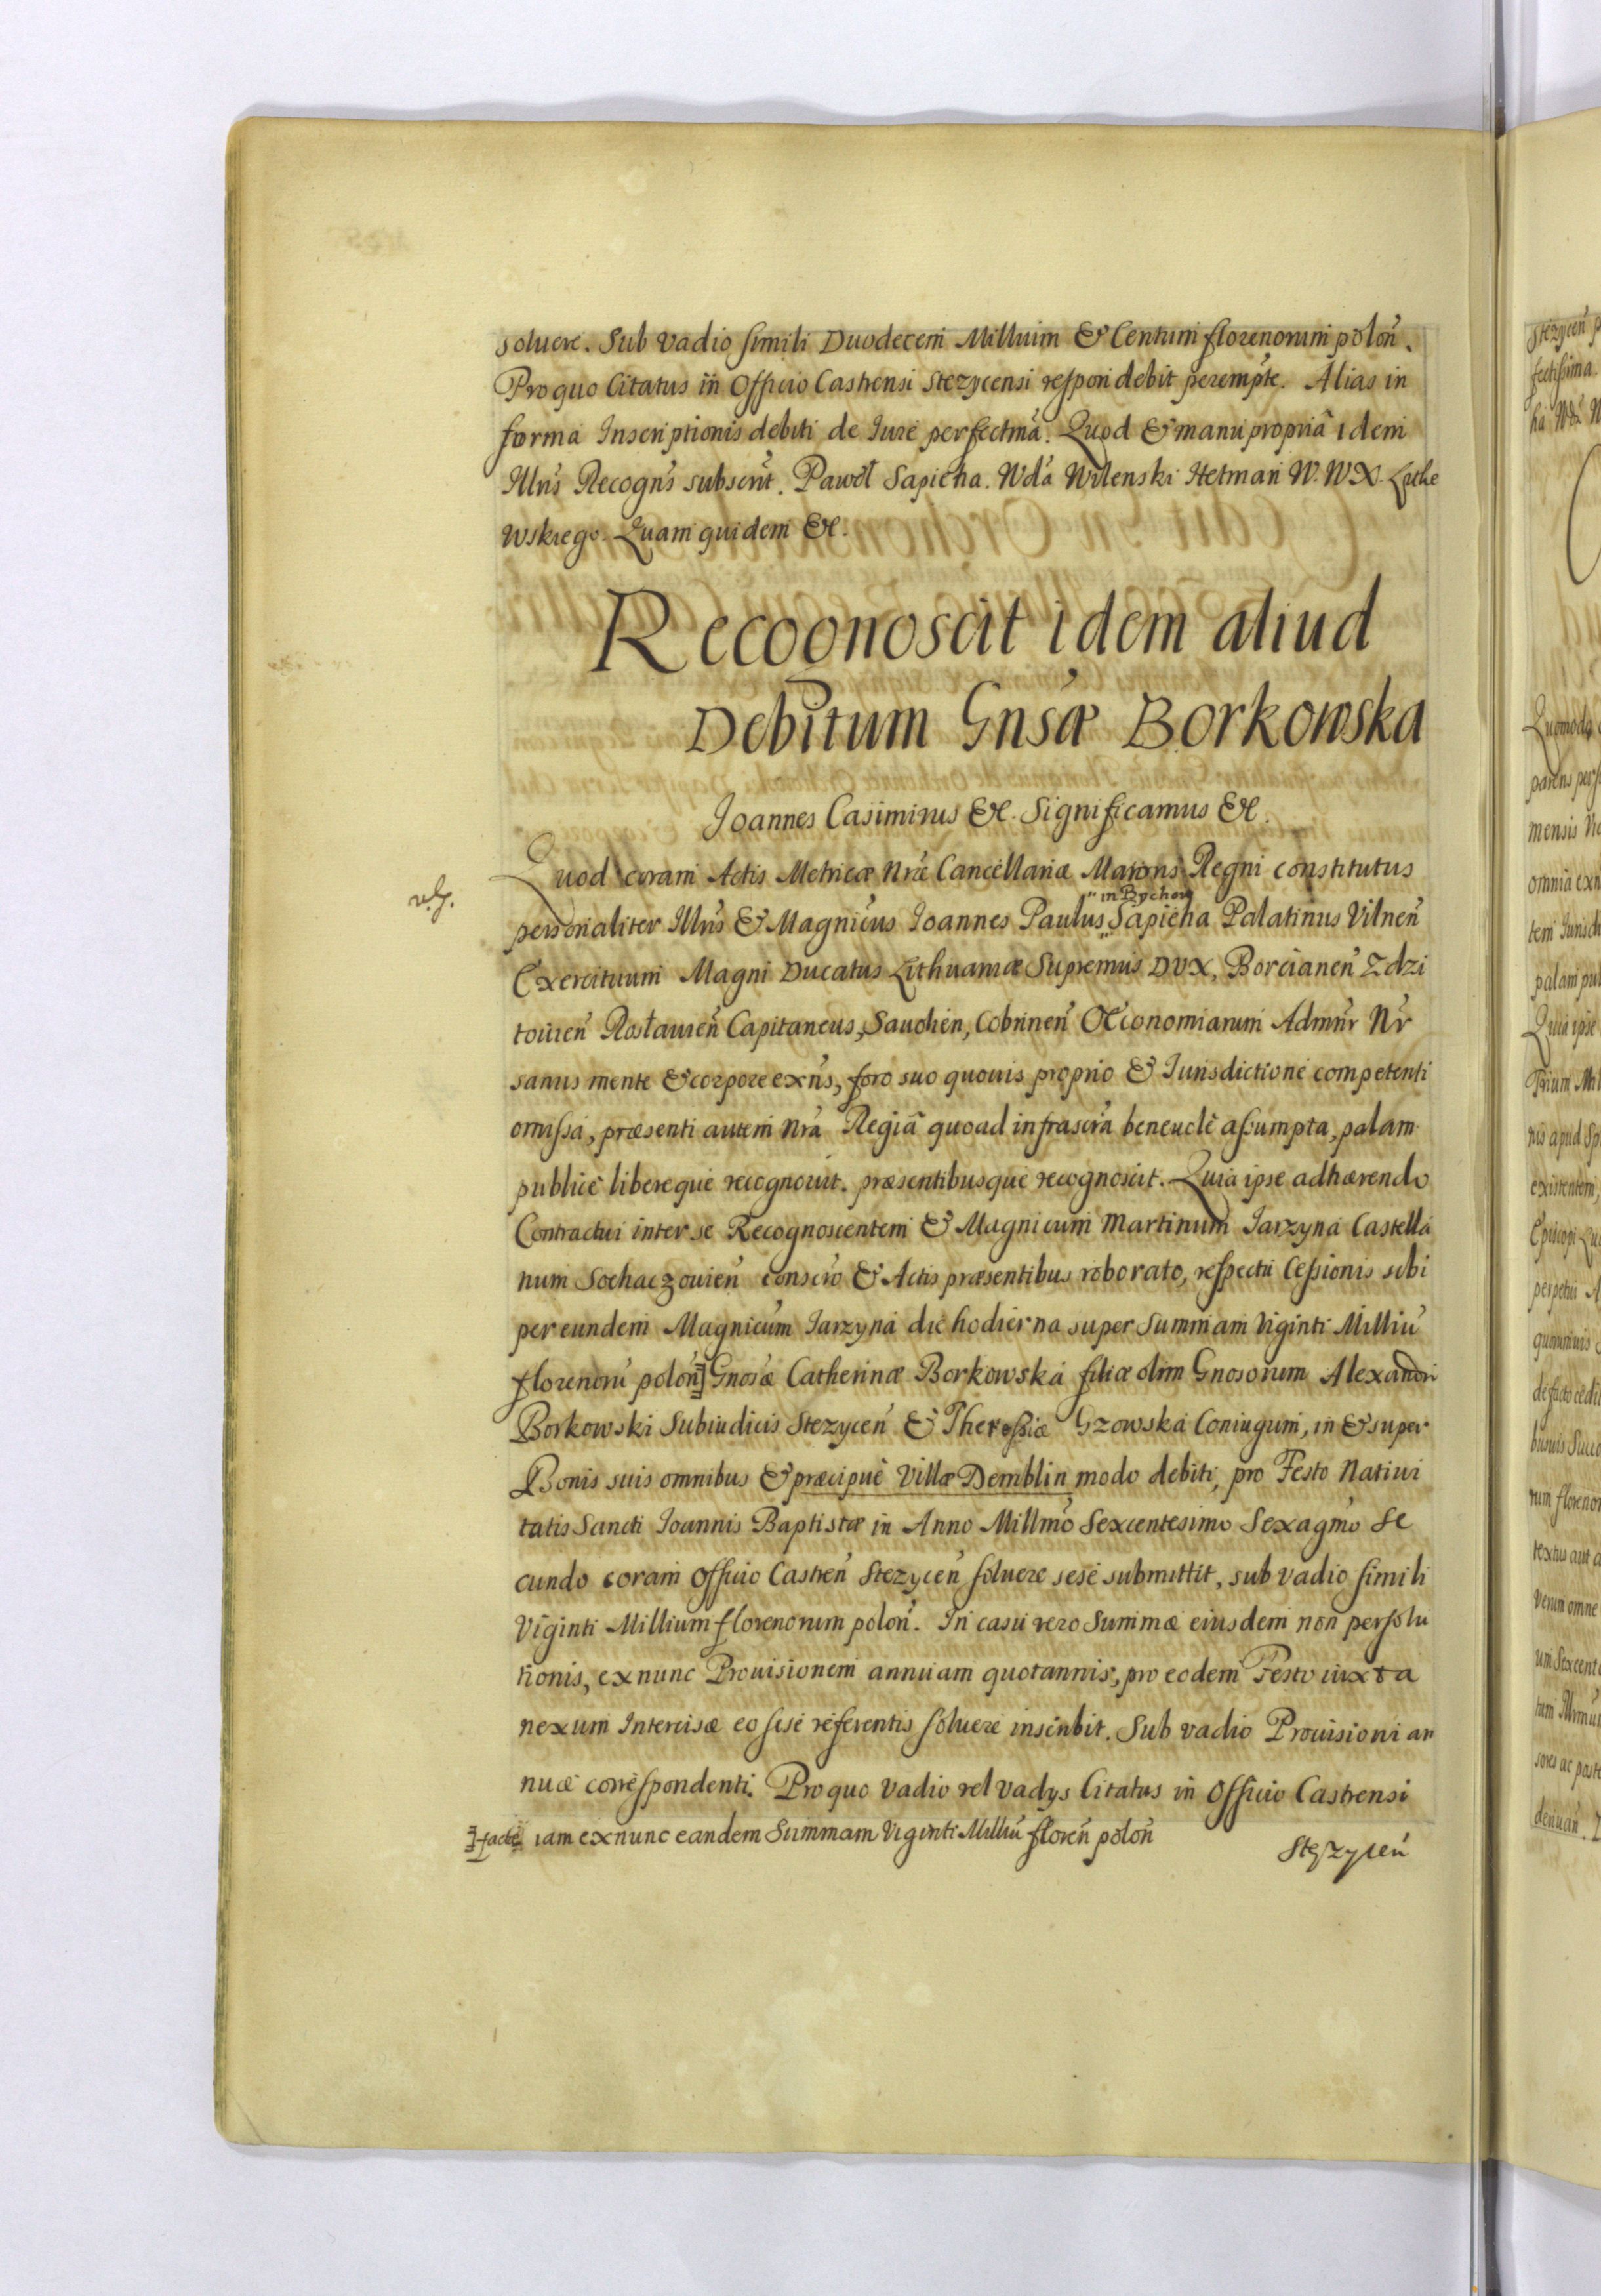 soluere. Sub vadio simili Duodecem Millium & Centum florenorum polon̄.
Pro quo Citatus in Officio Castrensi Stezycensi respondebit perempt̃e. Alias in
forma Inscriptionis debiti de Iure perfectm̃a. Quod & manu propriâ idem
Illr̃is Recogñs subscrit̃. Paweł Sapieha. Wda Wilenski Hetman W. W X. Litte
wskiego. Quam quidem &c.
Recognoscit idem aliud
Debitum Gnsæ Borkowska
Ioannes Casimirus &c. Significamus &c.
Quod coram Actis Metricæ Nræ Cancellariæ Maioris Regni constitutus
" in Bychow
personaliter Illr̃is & Magnicus Ioannes Paulus Sapieha Palatinus Vilnen̄
Exercituum Magni Ducatus Lithuaniæ Supremus DVX, Borcianen̄ Zdzi
touien̄ Rosłauien̄ Capitaneus, Sauohien, Cobrinen̄ Œconomiarum Admñr Nr̃
sanus mente & corpore exñs, foro suo quouis proprio & Iurisdictione competenti
omissa, præsenti autem Nrã Regiâ quoad infrascrã beneuolè assumpta, palam
publicè libereque recognouit. præsentibusque recognoscit. Quia ipse adhærendo
Contractui inter se Recognoscentem & Magnicum Martinum Iarzyna Castella
num Sochaczouien̄ conscrõ & Actis præsentibus roborato, respectu Cessionis sibi
per eundem Magnicum Iarzyna die hodierna super Summam Viginti Milliũ
florenorũ polon̄] Gnosæ Catherinæ Borkowska filiæ olim Gnosorum Alexandri
Borkowski Subiudicis Stezycen̄ & Theressiæ Gzowska Coniugum, in & super
Bonis suis omnibus & præcipuè Villæ Demblin modo debiti, pro Festo Natiui
tatis Sancti Ioannis Baptistæ in Anno Millmõ Sexcentesimo Sexagmõ Se
cundo coram Officio Castren̄ Stezycen̄ soluere sese submittit, sub vadio simili
Viginti Millium florenorum polon̄. In casu vero Summæ eiusdem non persolu
tionis, ex nunc Prouisionem annuam quotannis, pro eodem Festo iuxta
nexum Intercisæ eo sese referentis soluere inscribit. Sub vadio Prouisioni an
nuæ correspondenti. Pro quo vadio vel vadys Citatus in Officio Castrensi
] factæ iam ex nunc eandem Summam Viginti Milliũ floren̄ polon̄
Stęzycen̄